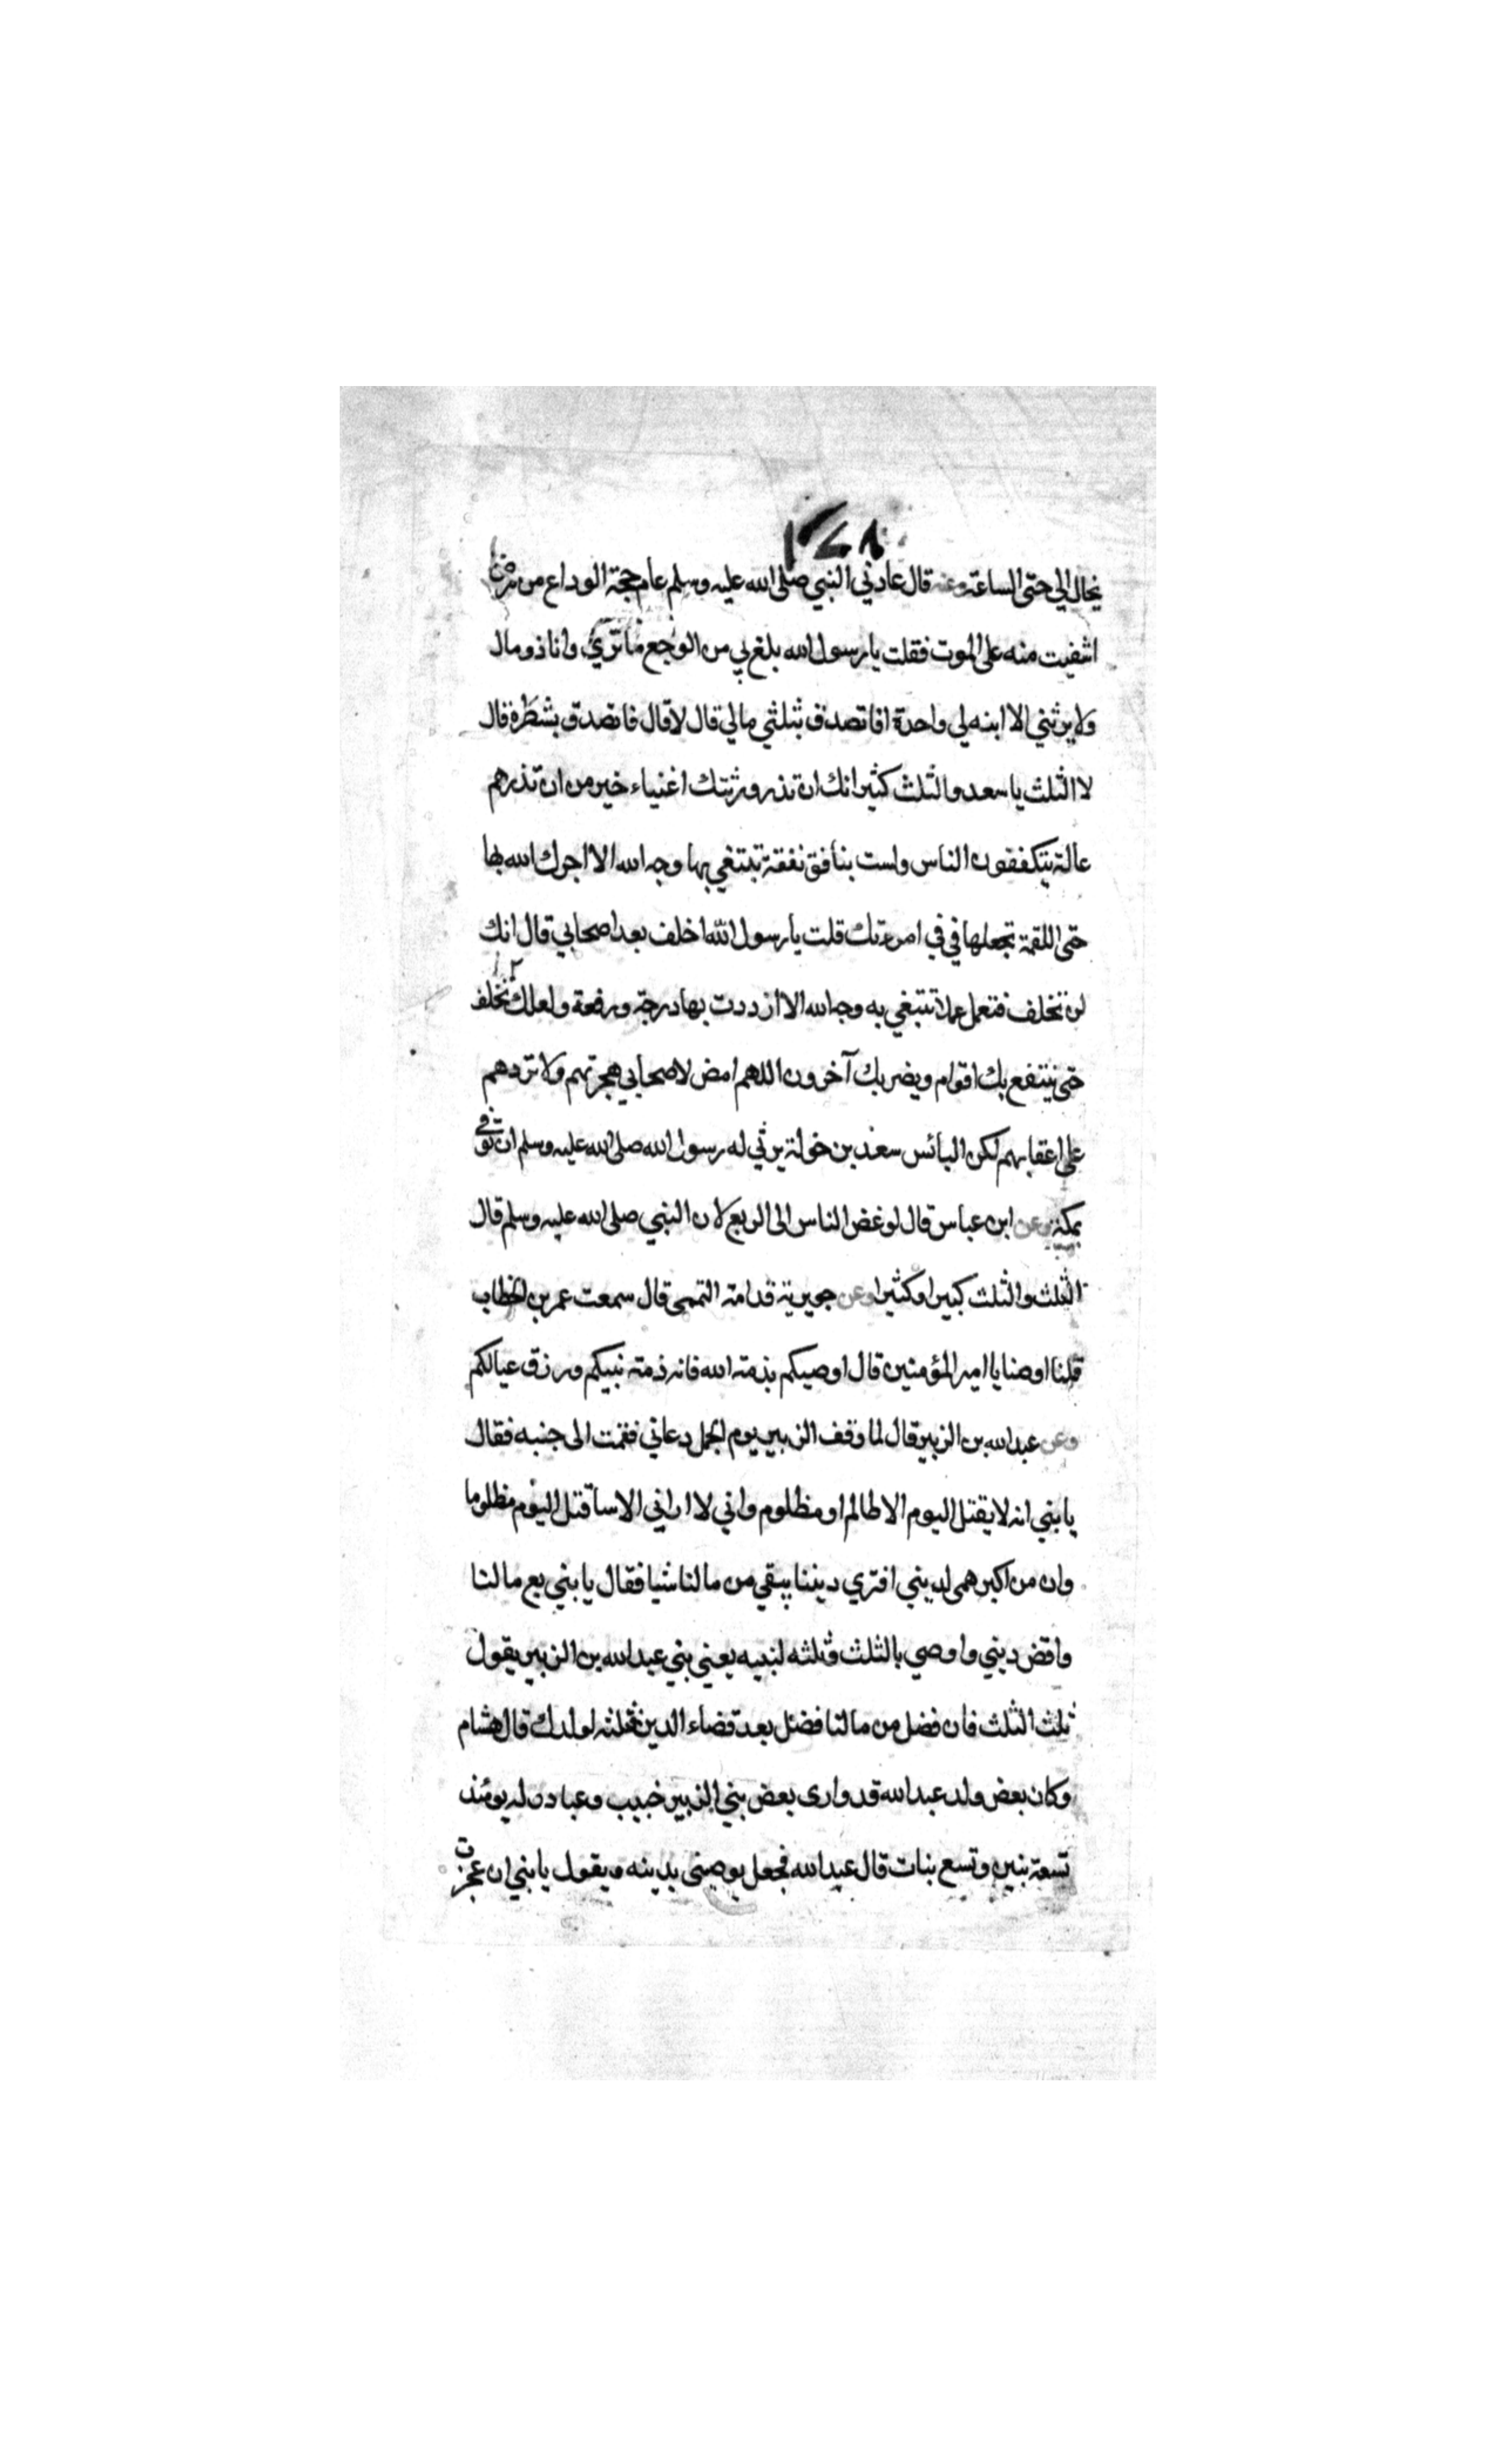 ١٤٨
يخال الي حتى الساعة وعنه قال عادني النبي صلى الله عليه وسلم عام حجة الوداع من مرض
اشفيت منه على الموت فقلت يا رسول الله بلغ بي من الوجع ما تري وانا ذو مال
ولا يرثني الا ابنه لي واحدة افاتصدق بثلثي مالي قال لا قال فاتصدق بشطره قال
لا الثلث يا سعد والثلث كثير انك ان تذر ورثتك اغنياء خير من ان تذرهم
عالة يتكففون الناس ولست بنافق نفقة تبتغي بها وجه الله الا اجرك الله بها
حتى اللقمة تجعلها في في امرءتك قلت يا رسول الله اخلف بعد اصحابي قال انك
لن تخلف فتعمل عملا تبتغي به وجه الله الا ازددت بها درجة ورفعة ولعلك تخلف
حتى ينتفع بك اقوام ويضر بك آخرون اللهم امض لاصحابي هجرتهم ولا تردهم
على اعقابهم لكن البائس سعد بن خولة يرثي له رسول الله صلى الله عليه وسلم ان توفي
بمكة وعن ابن عباس قال لو غض الناس الى الربع لان النبي صلى الله عليه وسلم قال
الثلث والثلث كبير او كثير وعن جويرية قدامة التميمى قال سمعت عمر بن الخطاب
قلنا اوصنا يا امير المؤمنين قال اوصيكم بذمة الله فانه ذمة نبيكم ورزق عيالكم
وعن عبد الله بن الزبير قال لما وقف الزبير يوم الجمل دعاني فقمت الى جنبه فقال
يا بني انه لا يقتل اليوم الا ظالم او مظلوم واني لا اراني الا ساقتل اليوم مظلوما
وان من اكبر همى لديني افتري ديننا يبقي من مالنا شيا فقال يا بني بع مالنا
واقض ديني واوصي بالثلث وثلثه لبنيه يعني بني عبد الله بن الزبير يقول
ثلث الثلث فان فضل من مالنا فضل بعد قضاء الدين فثلثه لولدك قال هشام
وكان بعض ولد عبد الله قد وارى بعض بني الزبير خبيب وعباد وله يومئذ
تسعة بنين وتسع بنات قال عبد الله فجعل يوصنى بدينه ويقول يا بني ان عجزت